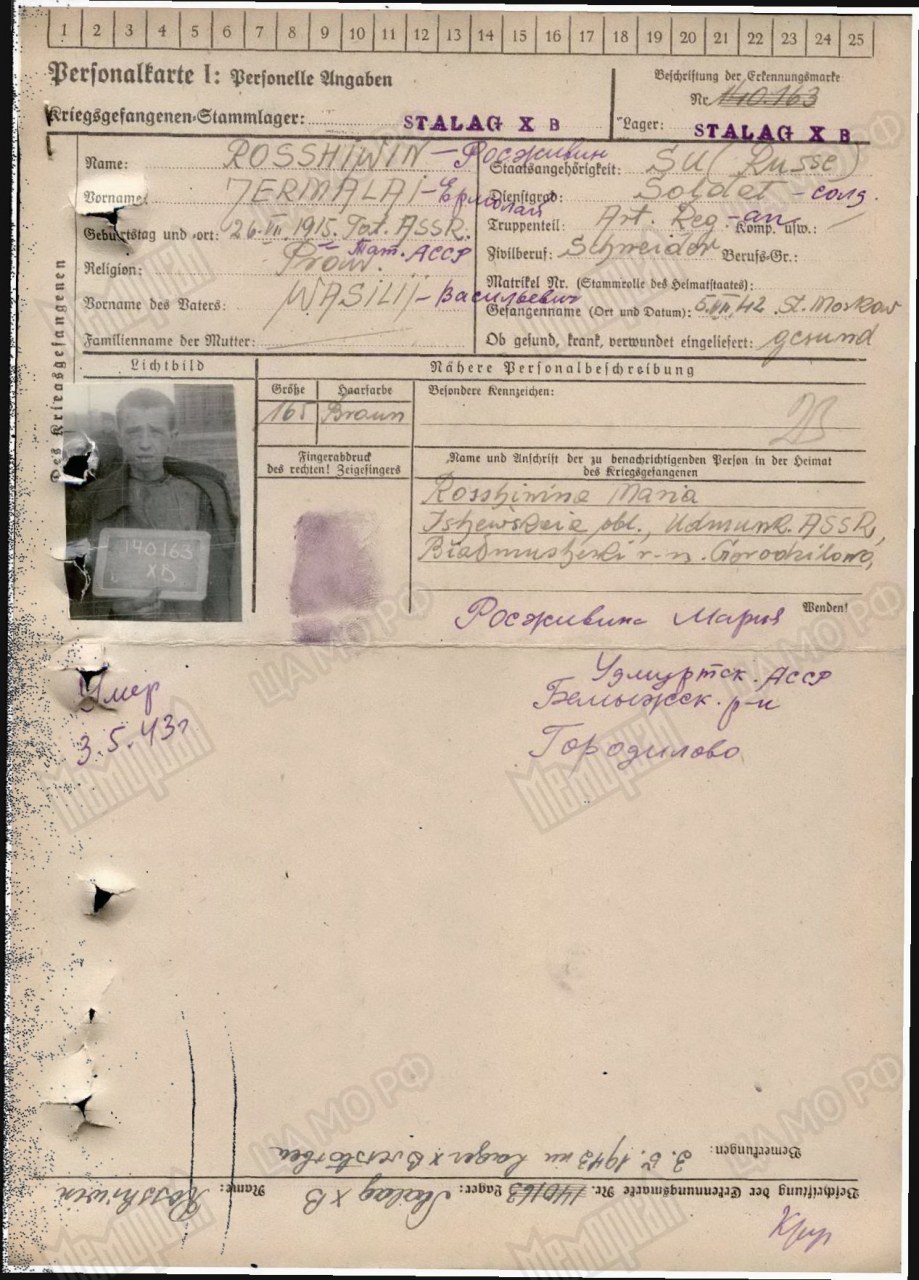 1 2 3 4 5 6 7 8 9 10 11 12 13 14 15 16 17 18 19 20 21 22 23 24 25
Personalkarte I: Personelle Angaben
Beschriftung der Erkennungsmarke
Nr. 140.163
Kriegsgefangenen-Stammlager: STALAG X B
Lager: STALAG X B
Des Kriegsgefangenen
Name: ROSSHIWIN – Росживин
Vorname: JERMALAI – Ермолай
Geburtstag und -ort: 26.VII.1915. Tat. ASSR.
Тат. АССР
Religion: Prow.
Vorname des Vaters: WASILIJ – Васильевич
Familienname der Mutter:
Staatsangehörigkeit: SU (Russe)
Dienstgrad: Soldat – солд.
Truppenteil: Art. Reg – ап Komp. usw.:
Zivilberuf: Schneider Berufs-Gr.:
Matrikel Nr. (Stammrolle des Heimatstaates):
Gefangenname (Ort und Datum): 6.VII.42 St. Moskow
Ob gesund, krank, verwundet eingeliefert: gesund
Lichtbild
Nähere Personalbeschreibung
Größe Haarfarbe Besondere Kennzeichen:
165 Braun
Fingerabdruck
des rechten! Zeigefingers
140163
XB
Name und Anschrift der zu benachrichtigenden Person in der Heimat
des Kriegsgefangenen
Rosshiwina Maria
Ishewskaia obl., Udmunk. ASSR,
r-n. Gorodilowo,
Wenden!
Росживина Мария
Удмуртск. АССР
Бемыжск. р-н
Городилово
Умер
3.5.43г
Bemerkungen: 3.5.1943 im Lager X B verstorben
Beschriftung der Erkennungsmarke Nr. 140163 Lager: Stalag X B Name: Rosshiwin
ЦА МО РФ
Мемориал